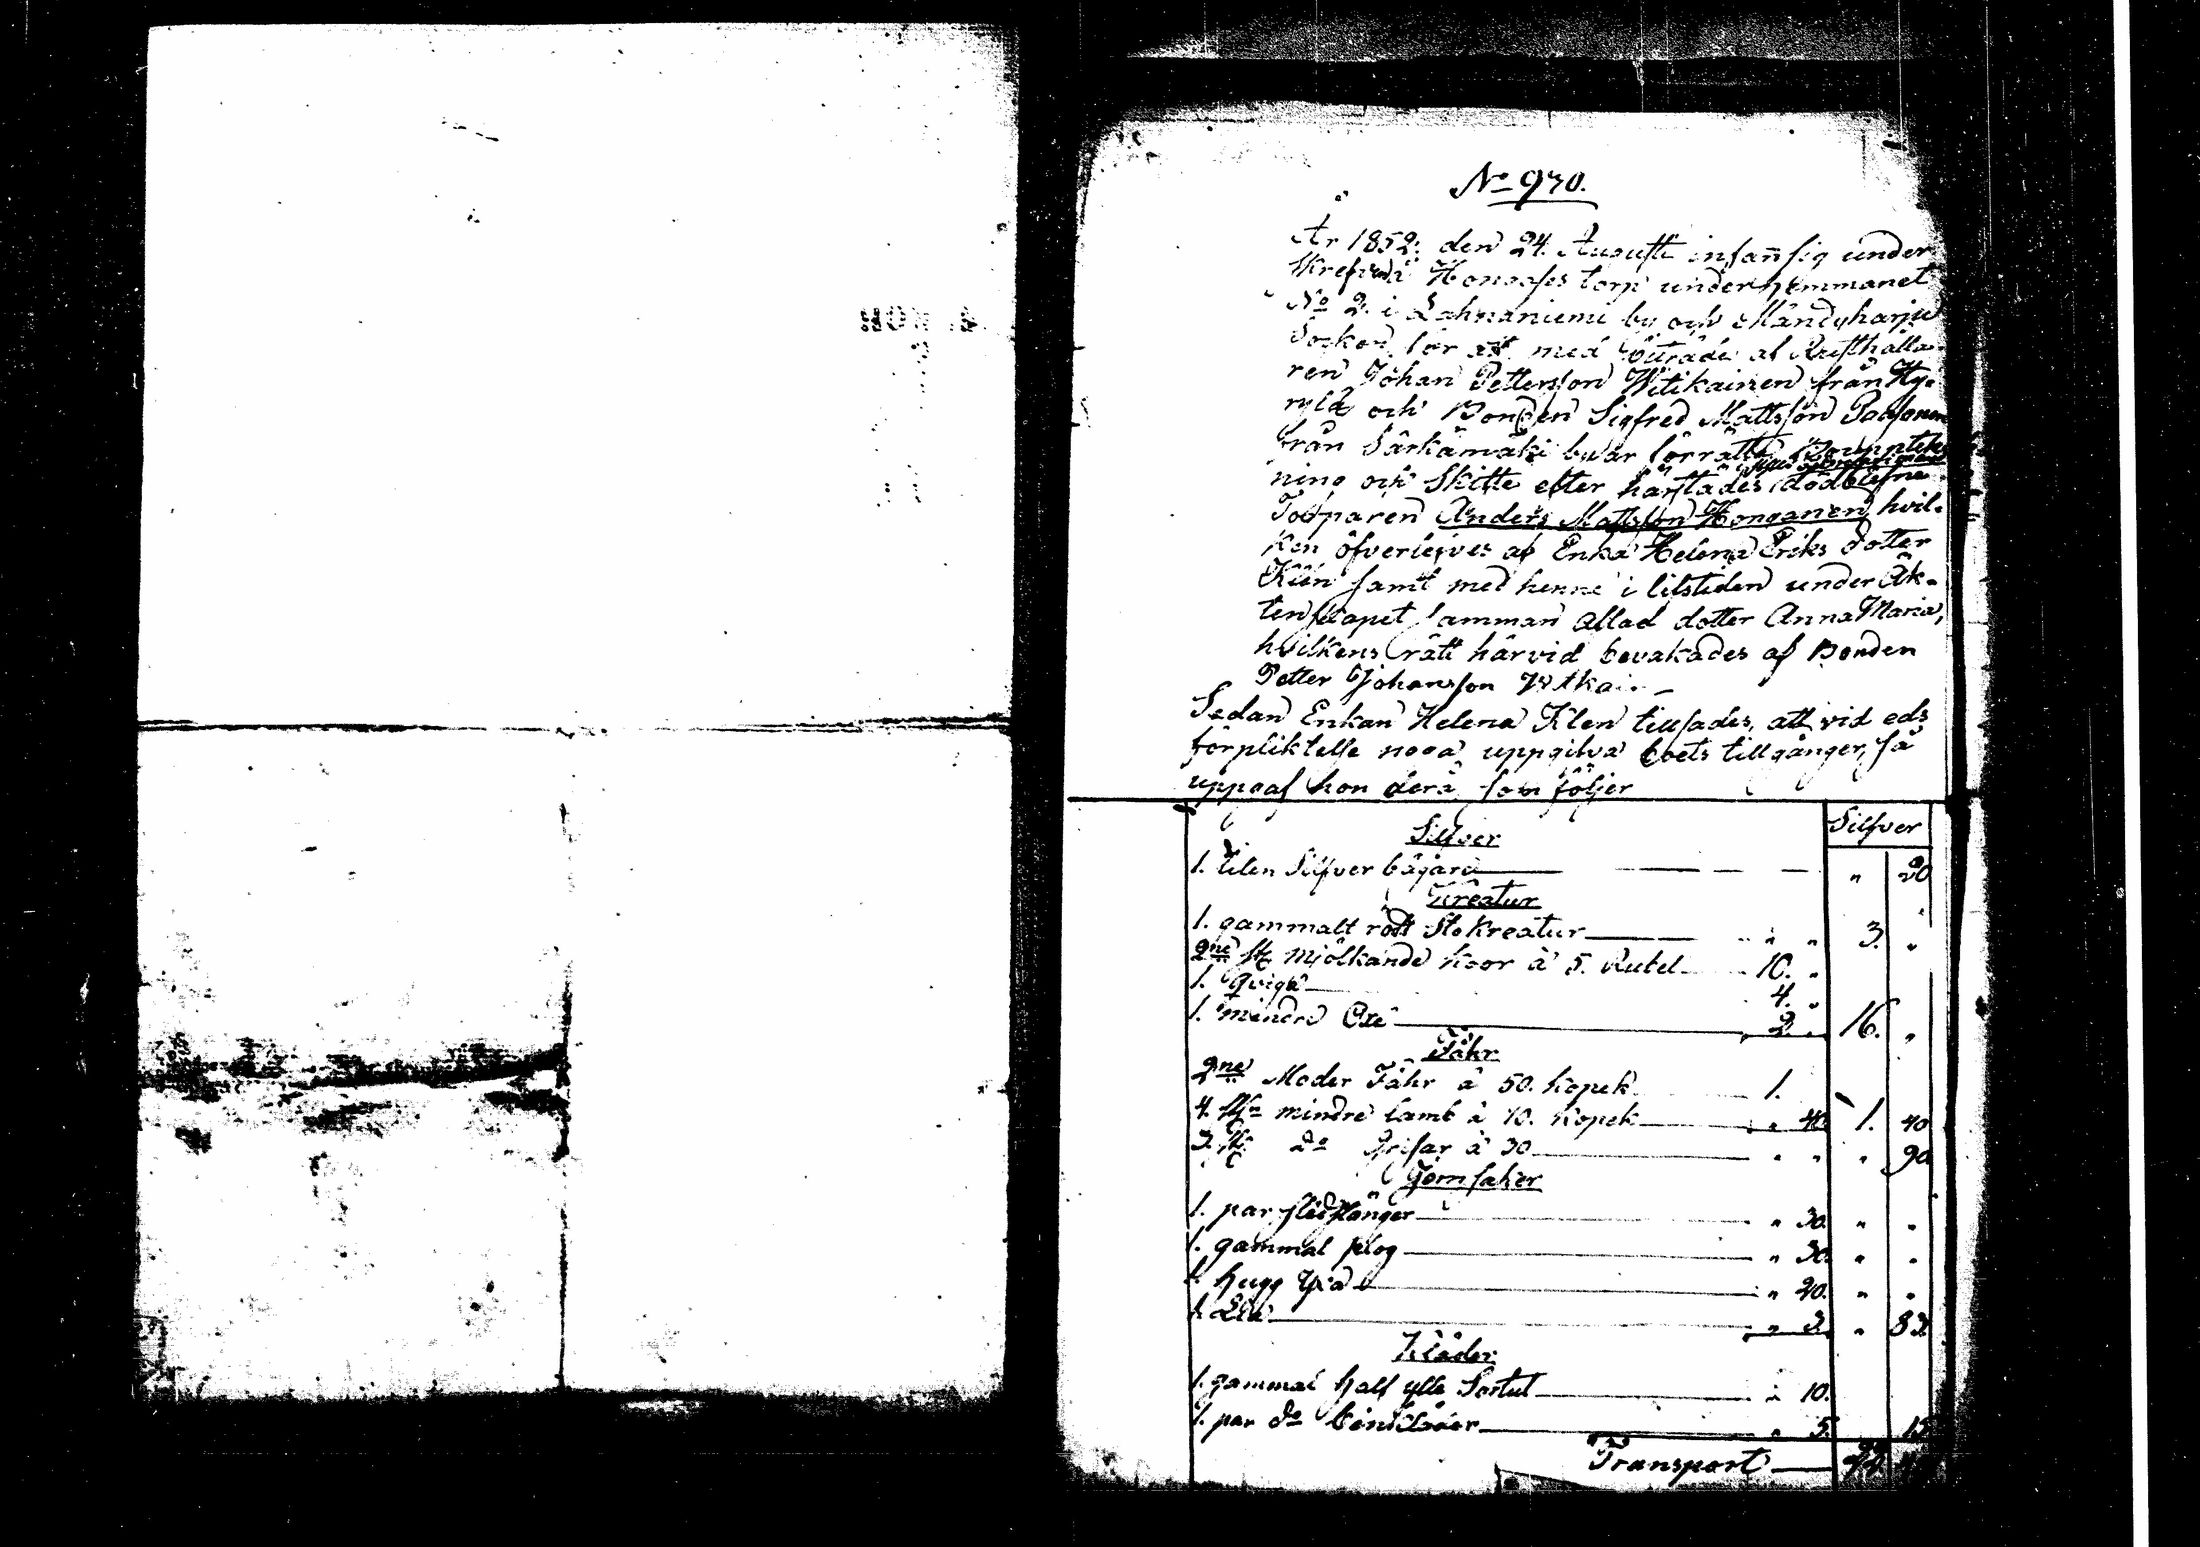 No 930.
År 1852. den 24. Augusti infann sig under
skrefven i Honoases torp under hemmanet
No 2. i Lahnaniemi by och Mändyharju
Socken för att med biträde af Rusthålla-
ren Johan Pettersson Witikainen från Hy-
rylä och Bonden Sigfred Mattsson Paasonen
från Särkämäki byar förrätta Bouppteck
ning och Skifte efter härstädes dödblefne
Torparen Anders Mattsson Honganen, hvil-
ken öfverlefves af Enka Helena Eriks dotter
Kiln samt med henne i lifstiden under Äk-
tenskapet samman aflad dotter Anna Maria,
hvilkens rätt härvid bevakades af Bonden
Petter Johansson
Sedan Enkan Helena Kilen tillsades, att vid eds
förpliktelse noga uppgifva boets tillgånger, så
uppgaf hon dera som följer
Silfver
Silfver
1. liten Silfver bägare " 20
Kreatur
1. gammalt rödt Stokreatur " " 3. "
2ne st. mjölkande koor à 5. Rubel 10. "
1. Qviga 4. "
1. mindre Oxe 2. " 16. "
Fåhr
2ne Moder Fåhr à 50. kopek 1.
4. st. mindre lamb à 10. kopek " 40. 1. 40
3. st. do Grisar à 30 " " " 90
Jernsaker
1. par slädstänger " 30. " "
1. gammal plog " 30. " "
1. hugg Yxa " 20. " "
1. Lia " 3. " 83.
Kläder
1. gammal half ylle Sortut " 10.
1. par do benkläder " 5. 15
Transport 22